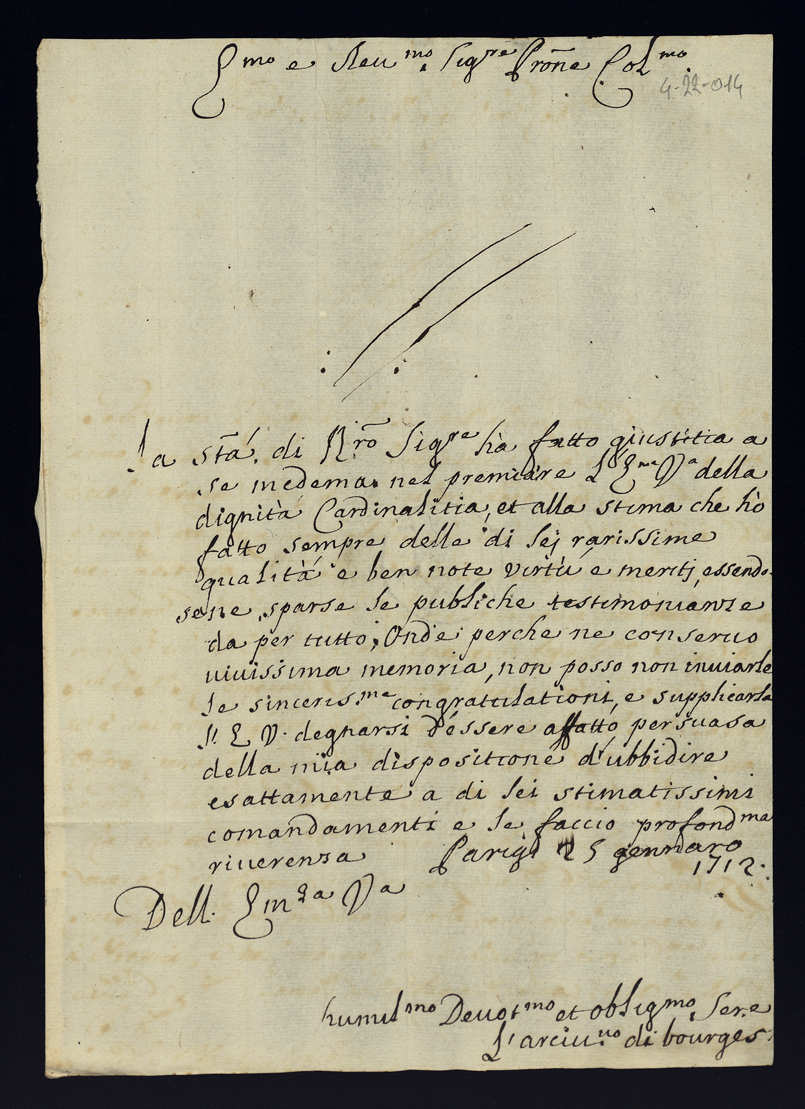 Em.mo e Reu.mo Sig.re Prone Col.mo
4-22-014
La stà. di N.ro Sig.re hà fatto giustitia a
se medema nel premiare L'Em.ma V.a della
dignità Cardinalitia, et alla stima che hò
fatto sempre delle di lej rarissime
qualità e ben note virtù e meritj, essendo-
sene sparse le publiche testimonianze
da per tutto; Onde perche ne conseruo
viuissima memoria, non posso non inuiarle
le sinceris.me congratulationi, e supplicarla
E V. degnarsi d'éssere affatto persuasa
della mia dispositione d'ubbidire
esattamente a di lei stimatissimi
comandamenti e le faccio profond.ma
riuerenza Parigi 25 gennaro
1712.
Dell. Em.za V.a
humil.mo Deuot.mo et oblig.mo Ser.e
L'arciu.uo di bourges